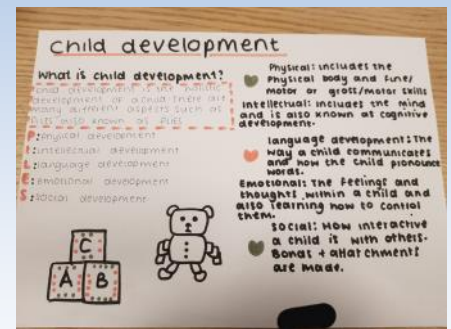 child development
What is child development?
child development is the holistic
development of a child there are
many different aspects such as
PILES also known as PILES
P: physical development
I: intellectual development
L: language development
E: emotional development
S: social development
C
A B
Physical: includes the
Physical body and fine/
motor or gross/motor skills
Intellectual: includes the mind
and is also known as cognitive
development.
language development: The
way a child communicates
and how the child pronounce
words.
Emotional: The feelings and
thoughts within a child and
also learning how to control
them.
Social: How interactive
a child is with others.
Bonds + attachments
are made.